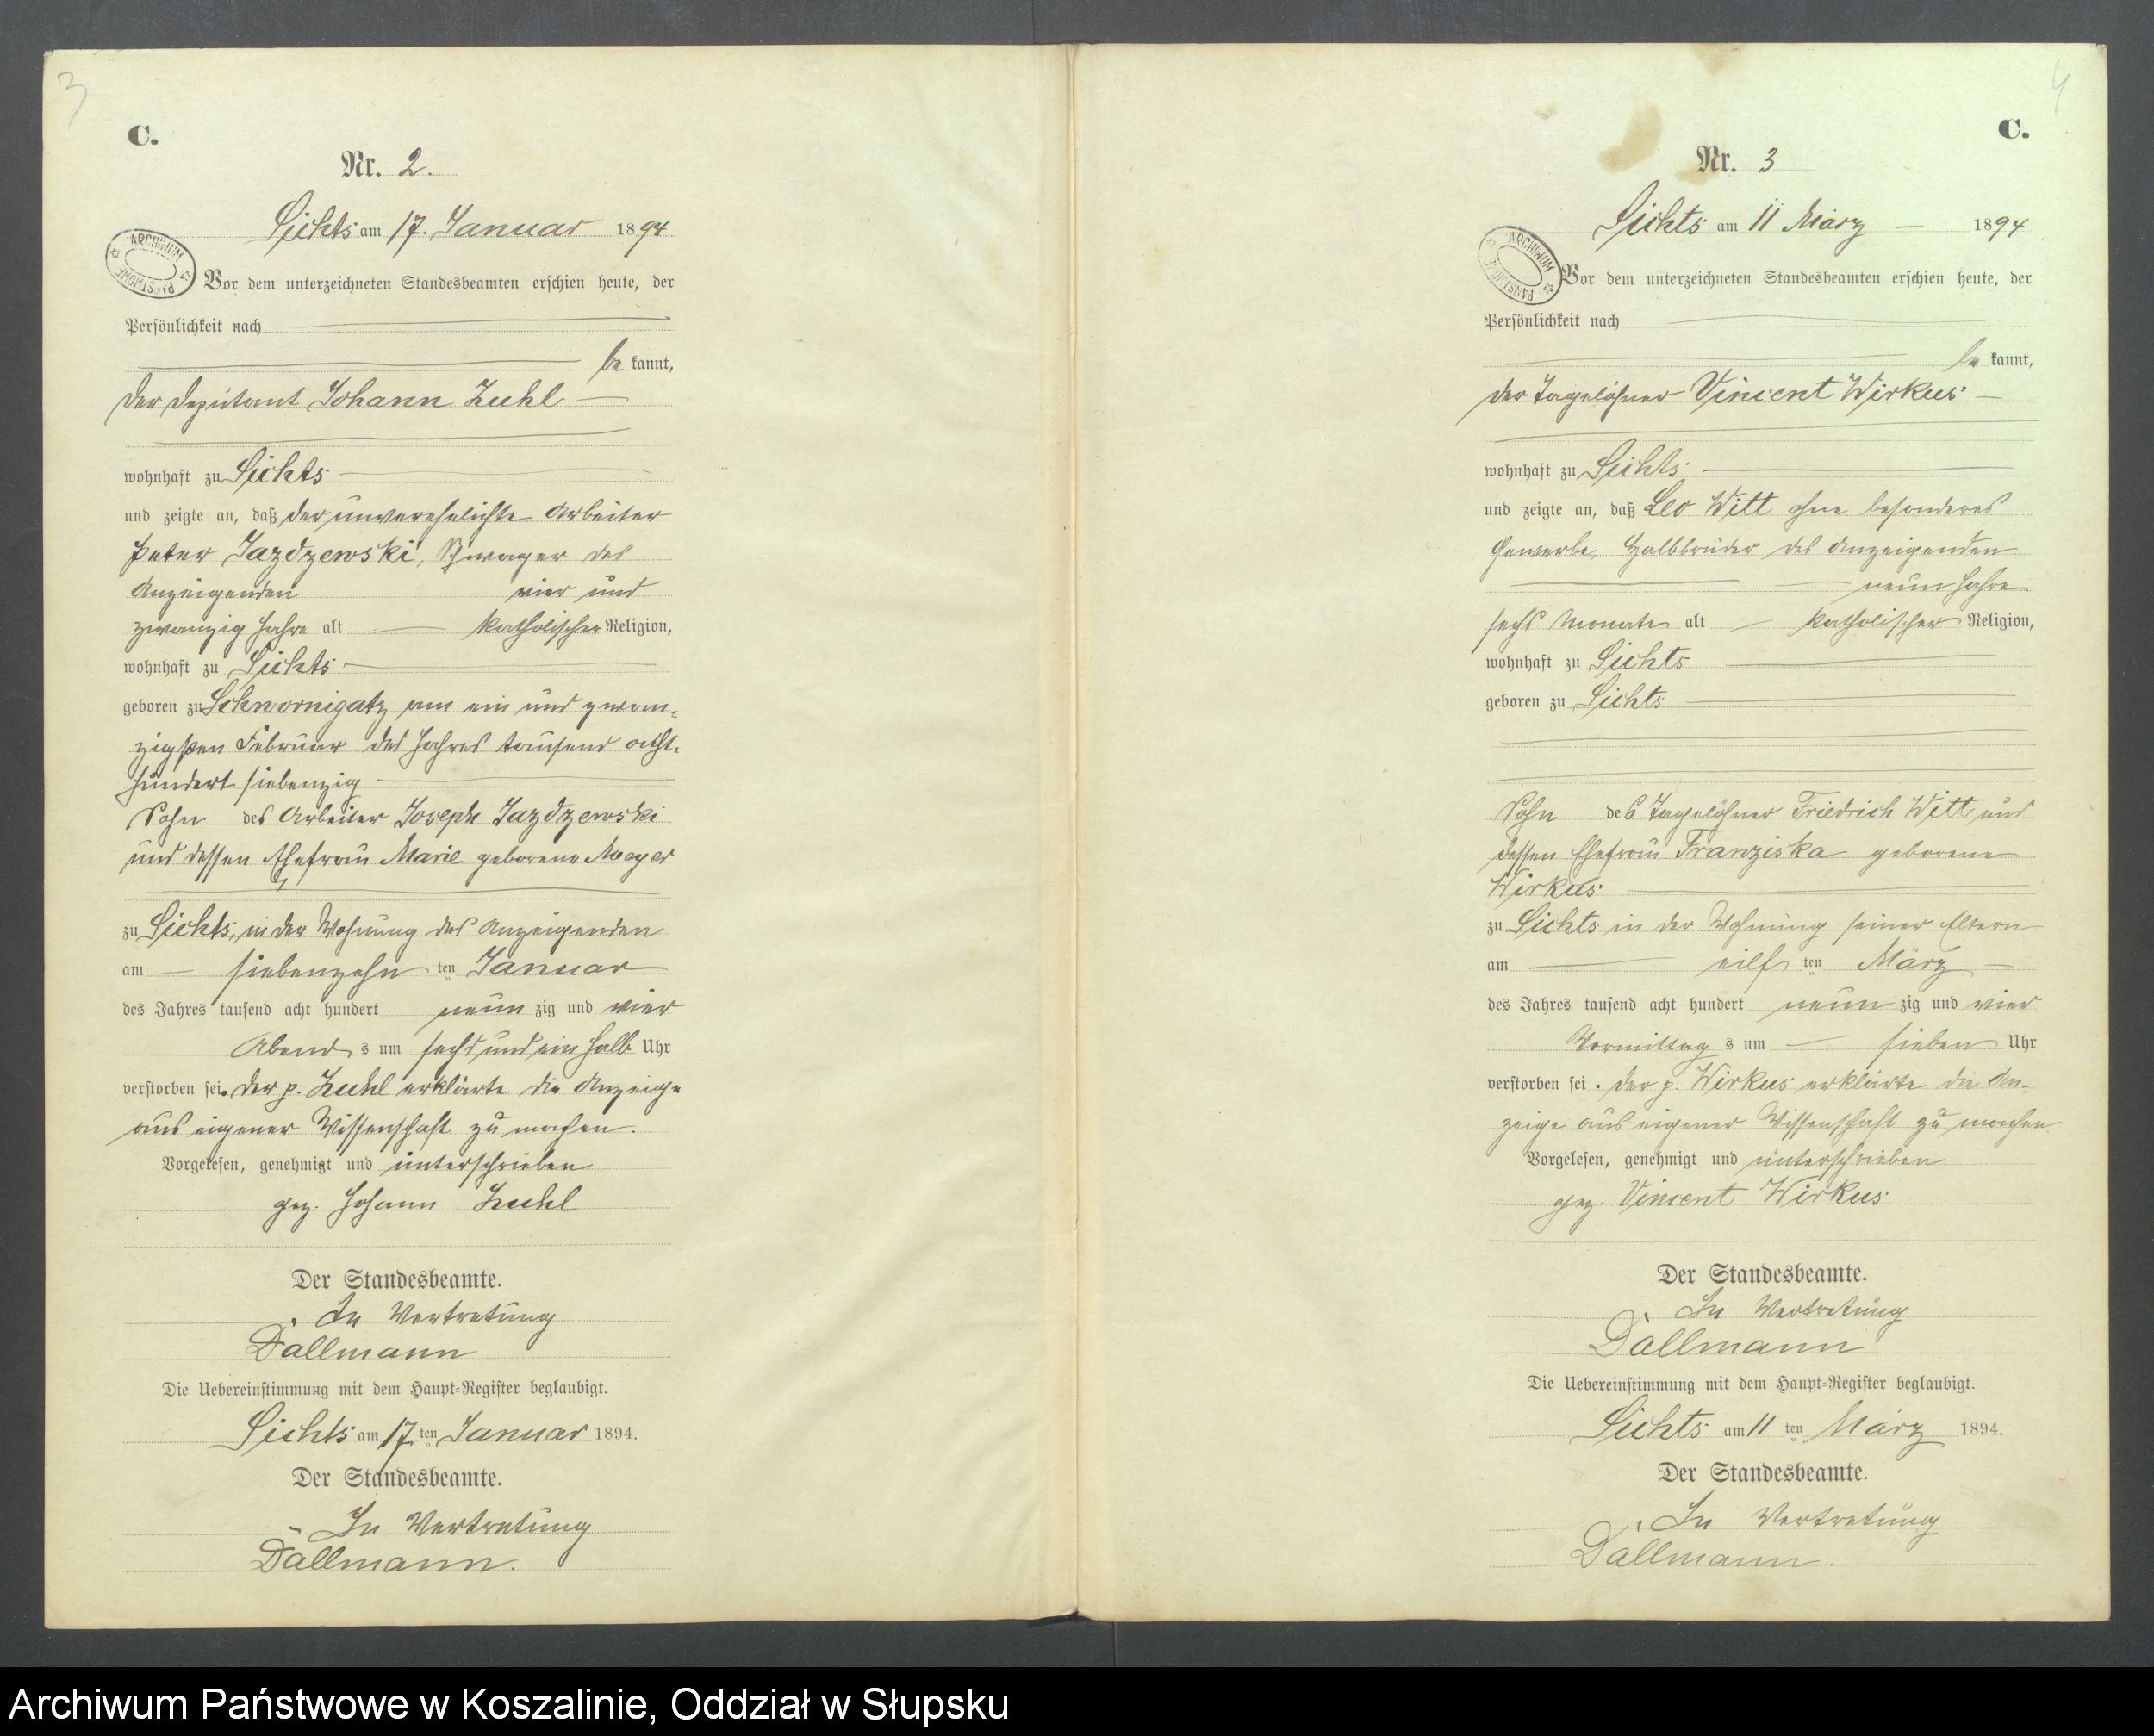 3
C.
Nr. 2.
Sichts am 17. Januar 1894
ARCHIWUM PAŃSTWOWE
Vor dem unterzeichneten Standesbeamten erschien heute, der
Persönlichkeit nach
be kannt,
der Deputant Johann Zuhl
wohnhaft zu Sichts
und zeigte an, daß der unverehelichte Arbeiter
Peter Jazdzewski, Schwager des
Anzeigenden vier und
zwanzig Jahre alt katholischer Religion,
wohnhaft zu Sichts
geboren zu Schwornigatz am ein und zwan-
zigsten Februar des Jahres tausend acht-
hundert siebenzig
Sohn des Arbeiter Joseph Jazdzewski
und dessen Ehefrau Marie geborene Meyer
zu Sichts, in der Wohnung des Anzeigenden
am siebenzehn ten Januar
des Jahres tausend acht hundert neun zig und vier
Abend s um sechs und ein halb Uhr
verstorben sei. Der p. Zuhl erklärte die Anzeige
aus eigener Wissenschaft zu machen.
Vorgelesen, genehmigt und unterschrieben
gez. Johann Zuhl
Der Standesbeamte.
In Vertretung
Dallmann
Die Uebereinstimmung mit dem Haupt-Register beglaubigt.
Sichts am 17 ten Januar 1894.
Der Standesbeamte.
In Vertretung
Dallmann.
4
C.
Nr. 3
Sichts am 11 März 1894
ARCHIWUM PAŃSTWOWE
Vor dem unterzeichneten Standesbeamten erschien heute, der
Persönlichkeit nach
be kannt,
der Tagelöhner Vincent Wirkus
wohnhaft zu Sichts
und zeigte an, daß Leo Witt ohne besonderes
Gewerbe, Halbbruder des Anzeigenden
neun Jahre
sechs Monate alt katholischer Religion,
wohnhaft zu Sichts
geboren zu Sichts
Sohn des Tagelöhner Friedrich Witt und
dessen Ehefrau Franziska geborene
Wirkus
zu Sichts in der Wohnung seiner Eltern
am eilf ten März
des Jahres tausend acht hundert neun zig und vier
Vormittag s um sieben Uhr
verstorben sei. Der p. Wirkus erklärte die An-
zeige aus eigener Wissenschaft zu machen
Vorgelesen, genehmigt und unterschrieben
gez. Vincent Wirkus
Der Standesbeamte.
In Vertretung
Dallmann
Die Uebereinstimmung mit dem Haupt-Register beglaubigt.
Sichts am 11 ten März 1894.
Der Standesbeamte.
In Vertretung
Dallmann.
Archiwum Państwowe w Koszalinie, Oddział w Słupsku